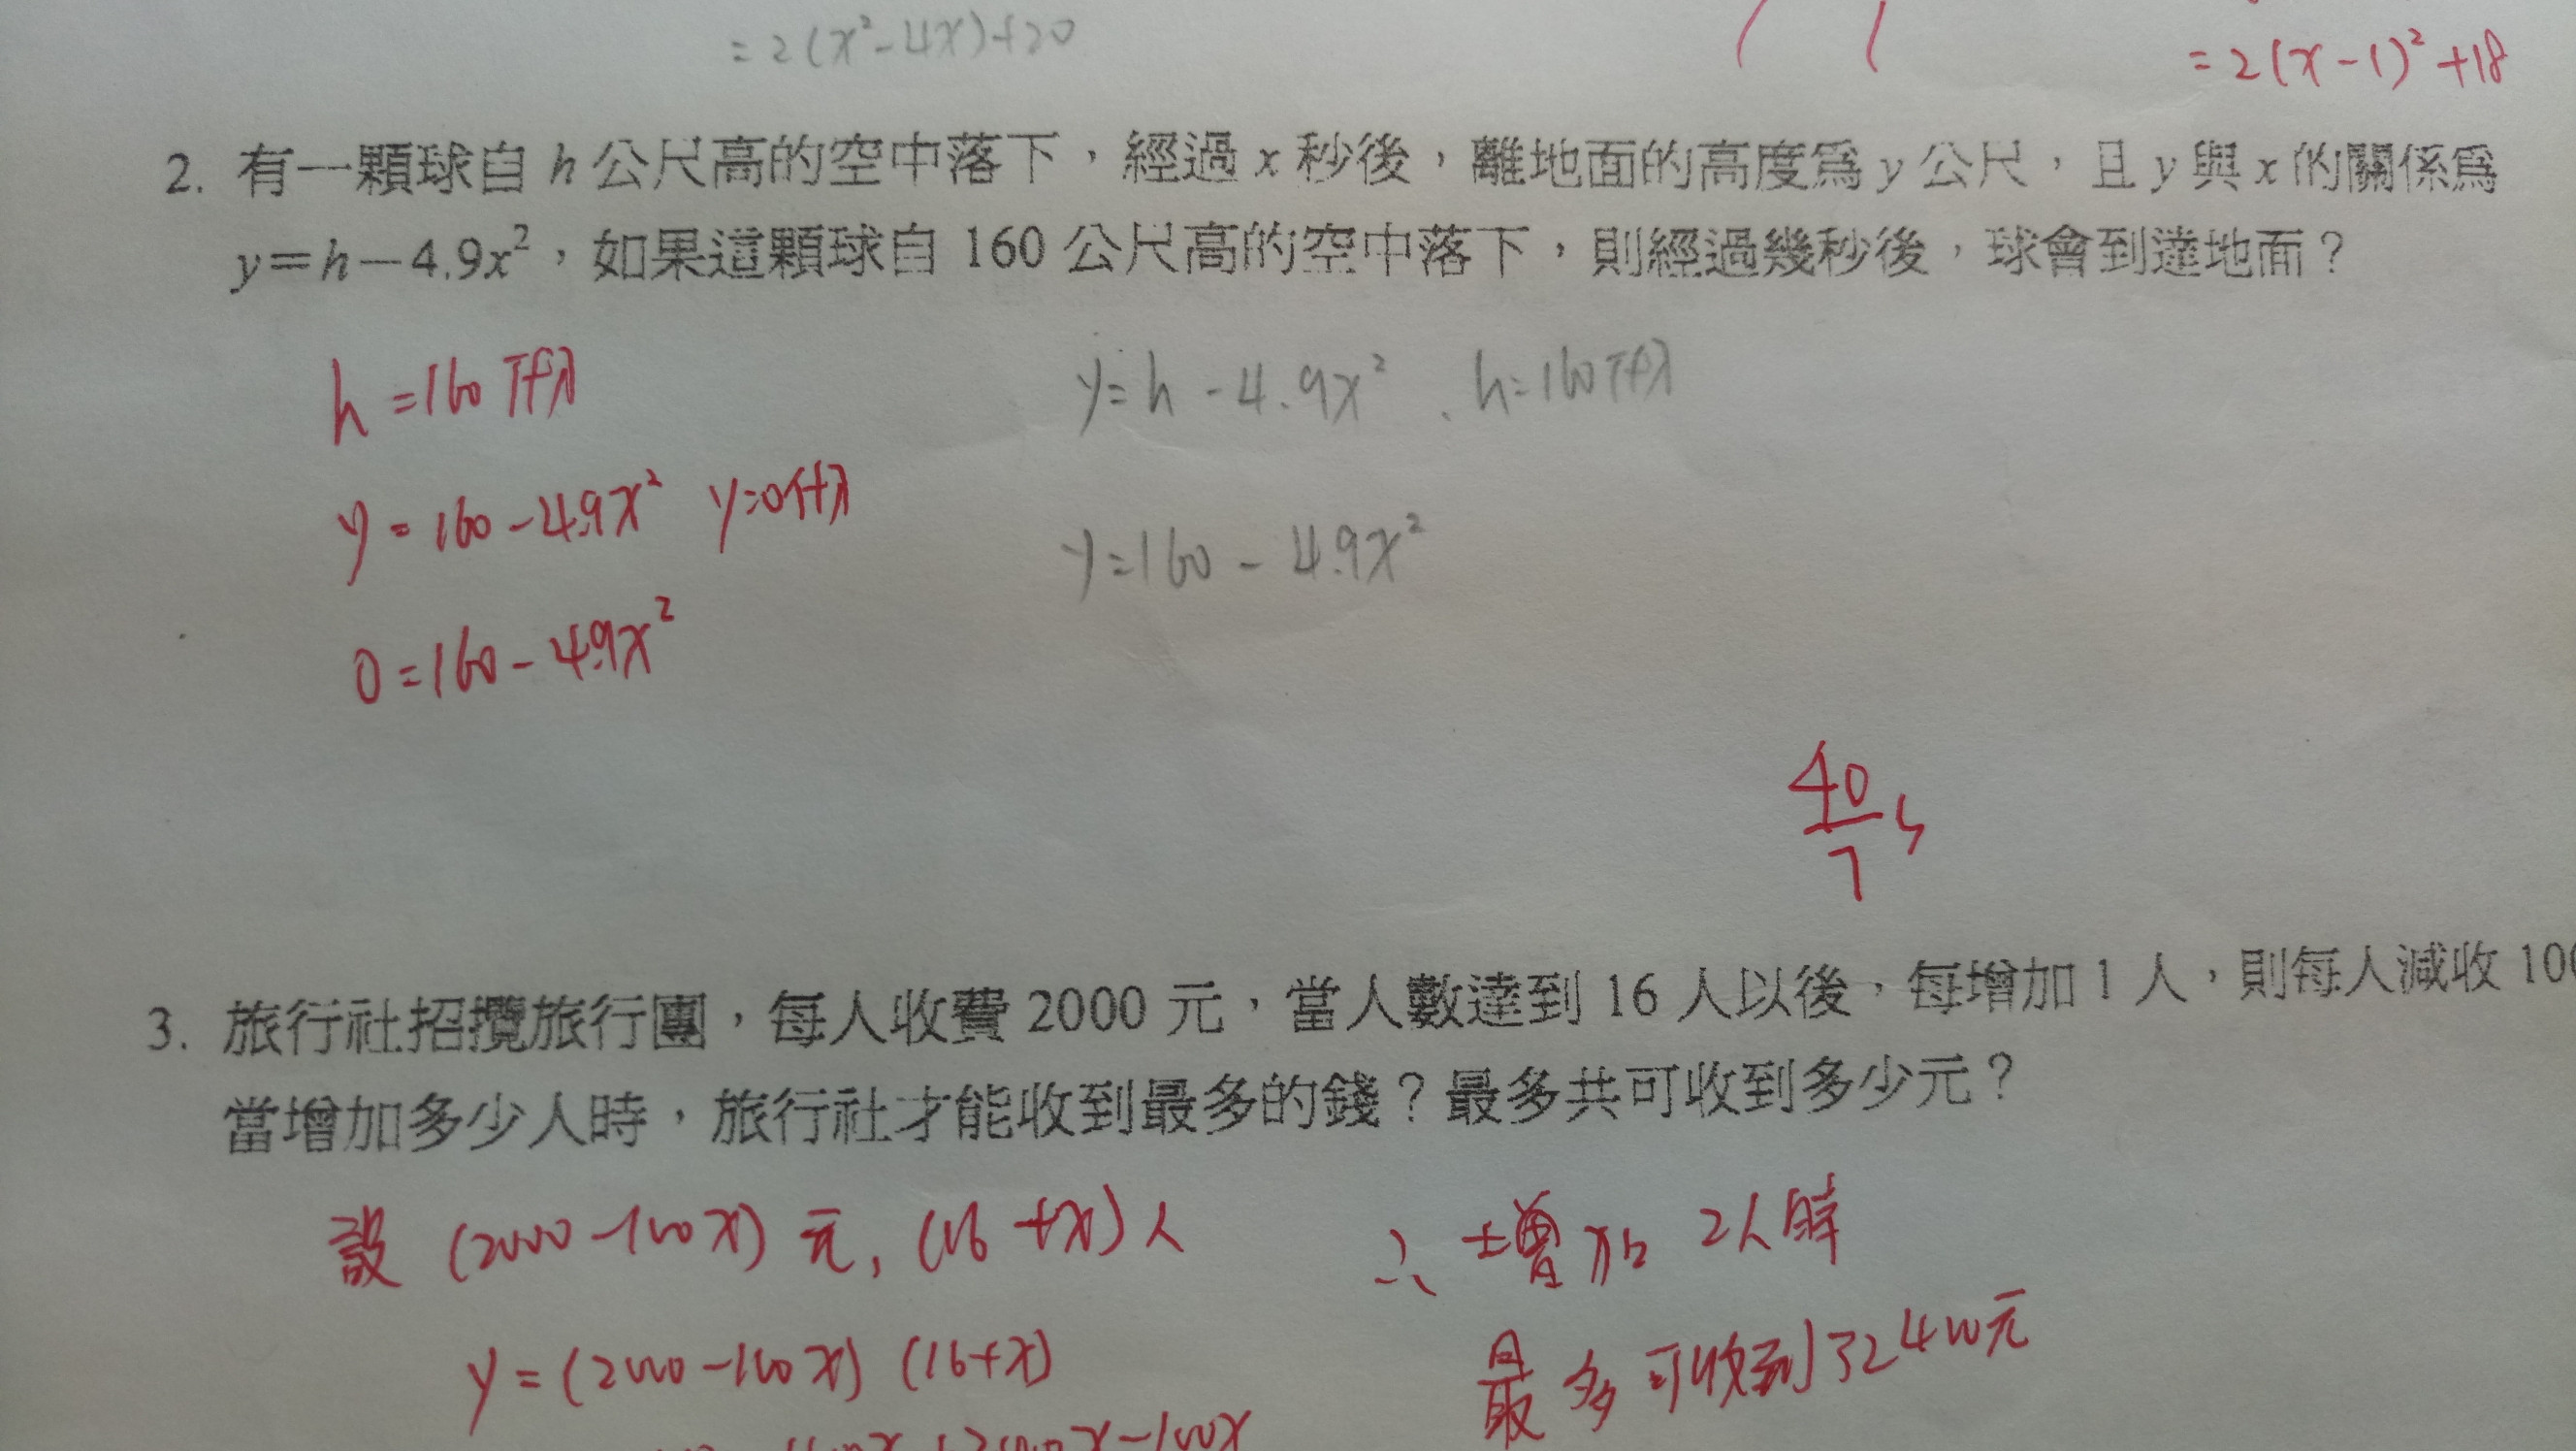 = 2(x²-4x)+20
= 2(x-1)²+18
2. 有一顆球自 h 公尺高的空中落下，經過 x 秒後，離地面的高度為 y 公尺，且 y 與 x 的關係為
y＝h－4.9x²，如果這顆球自 160 公尺高的空中落下，則經過幾秒後，球會到達地面？
h = 160 代入
y = 160 - 4.9x² y=0代入
0 = 160 - 4.9x²
y = h - 4.9x² 、h=160代入
y = 160 - 4.9x²
40/7 s
3. 旅行社招攬旅行團，每人收費 2000 元，當人數達到 16 人以後，每增加 1 人，則每人減收 100
當增加多少人時，旅行社才能收到最多的錢？最多共可收到多少元？
設 (2000-100x) 元, (16+x)人
y = (2000-100x) (16+x)
∴ 增加 2人時
最多可收到32400元